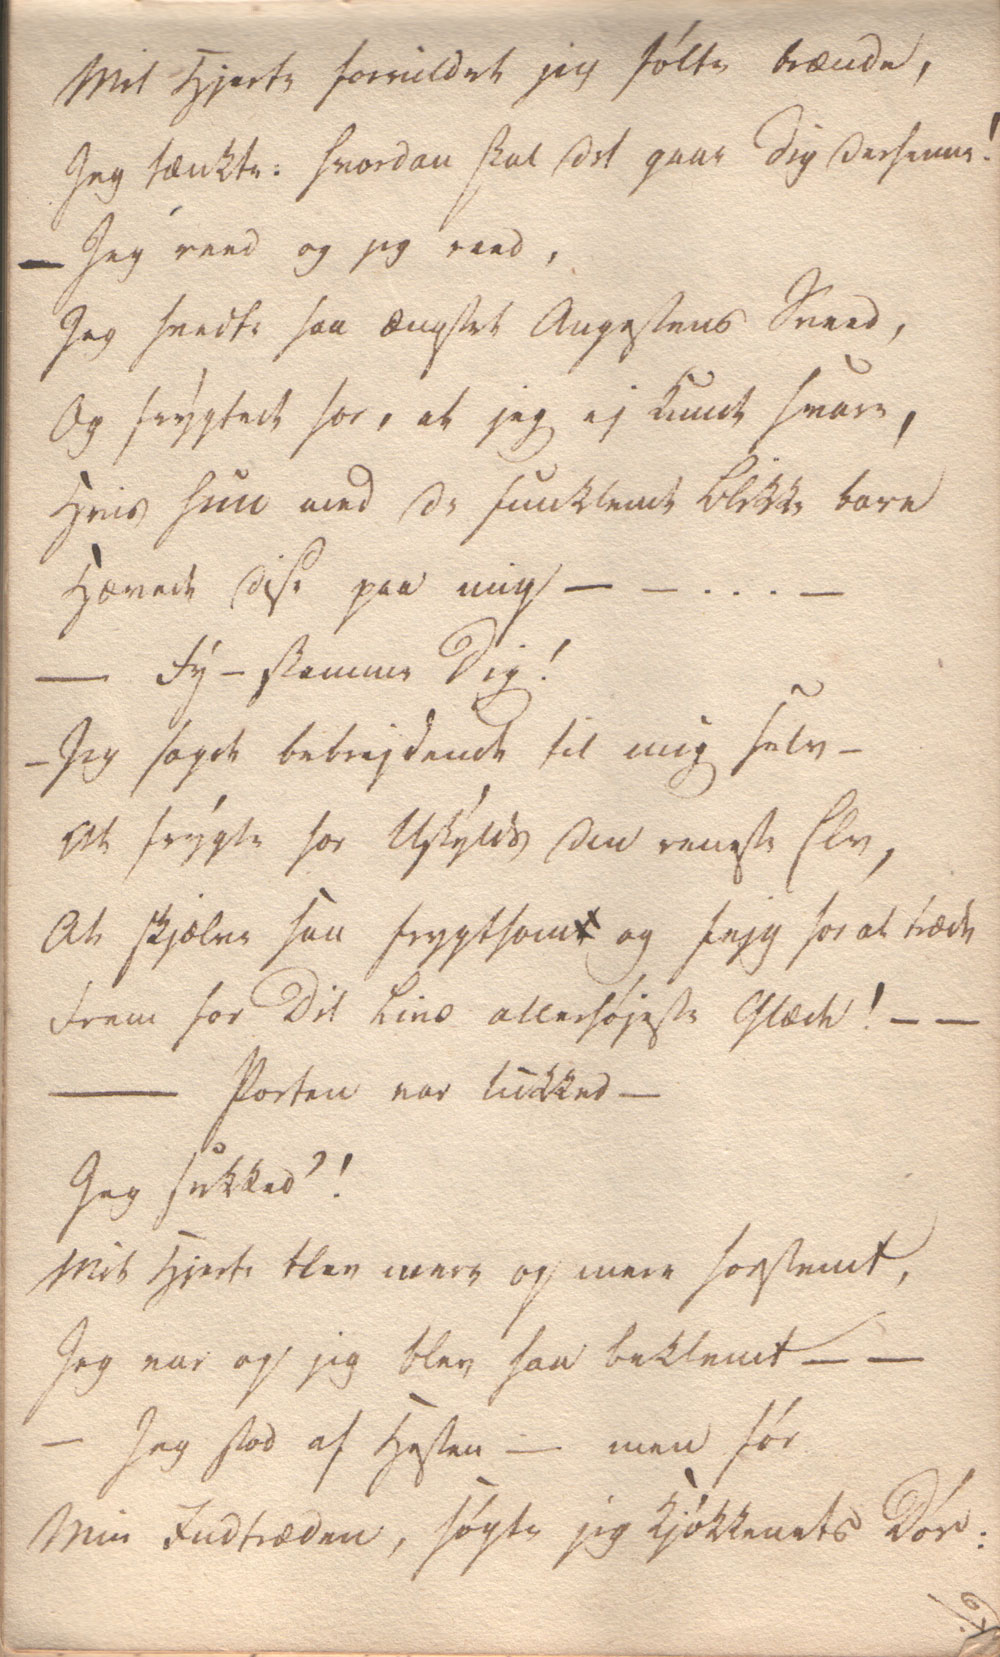 Mit Hjerte forvildet jeg følte brænde,
Jeg tænkte: hvordan skal det gaae dig derhenne!
— Jeg reed og jeg reed,
Jeg svedte saa ængstet Angestens Sveed,
Og frygtede for, at jeg ej kunde svare,
Hvis hun med de funklende Blikke bare
Hævede disse paa mig — — . . . —
— Fy — skamme Dig!
— Jeg sagde bebrejdende til mig selv —
At frygte for Uskylds den reneste Elv,
At skjælve saa frygtsom og fejg for at træde
Frem for Dit Livs allerhøjeste Glæde! — —
— Porten var lukked —
Jeg sukked'!
Mit Hjerte blev mere og mere forstemt,
Jeg var og jeg blev saa beklemt — —
— Jeg stod af Hesten — men før
Min Indtræden, søgte jeg Kjøkkenets Dør: